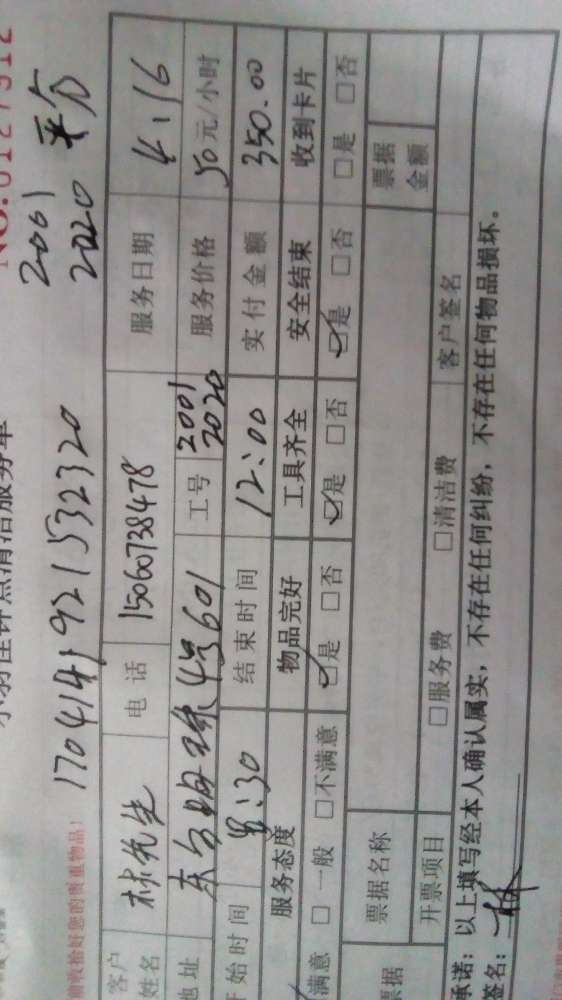 NO.0127312
钟点清洁服务单
17041419215 32320
2001
2020 平分
请收拾好您的贵重物品！
客户姓名 林先生 电话 15060738478 服务日期 4.16
地址 4号601 工号 2001 2020 服务价格 50元/小时
开始时间 8:30 结束时间 12:00 实付金额 350.00
服务态度 物品完好 工具齐全 安全结束 收到卡片
满意 □ 一般 □不满意 ☑是 □否 ☑是 □否 ☑是 □否 □是 □否
票据 票据名称 票据金额
开票项目 □服务费 □清洁费 客户签名
承诺：以上填写经本人确认属实，不存在任何纠纷，不存在任何物品损坏。
签名： 林